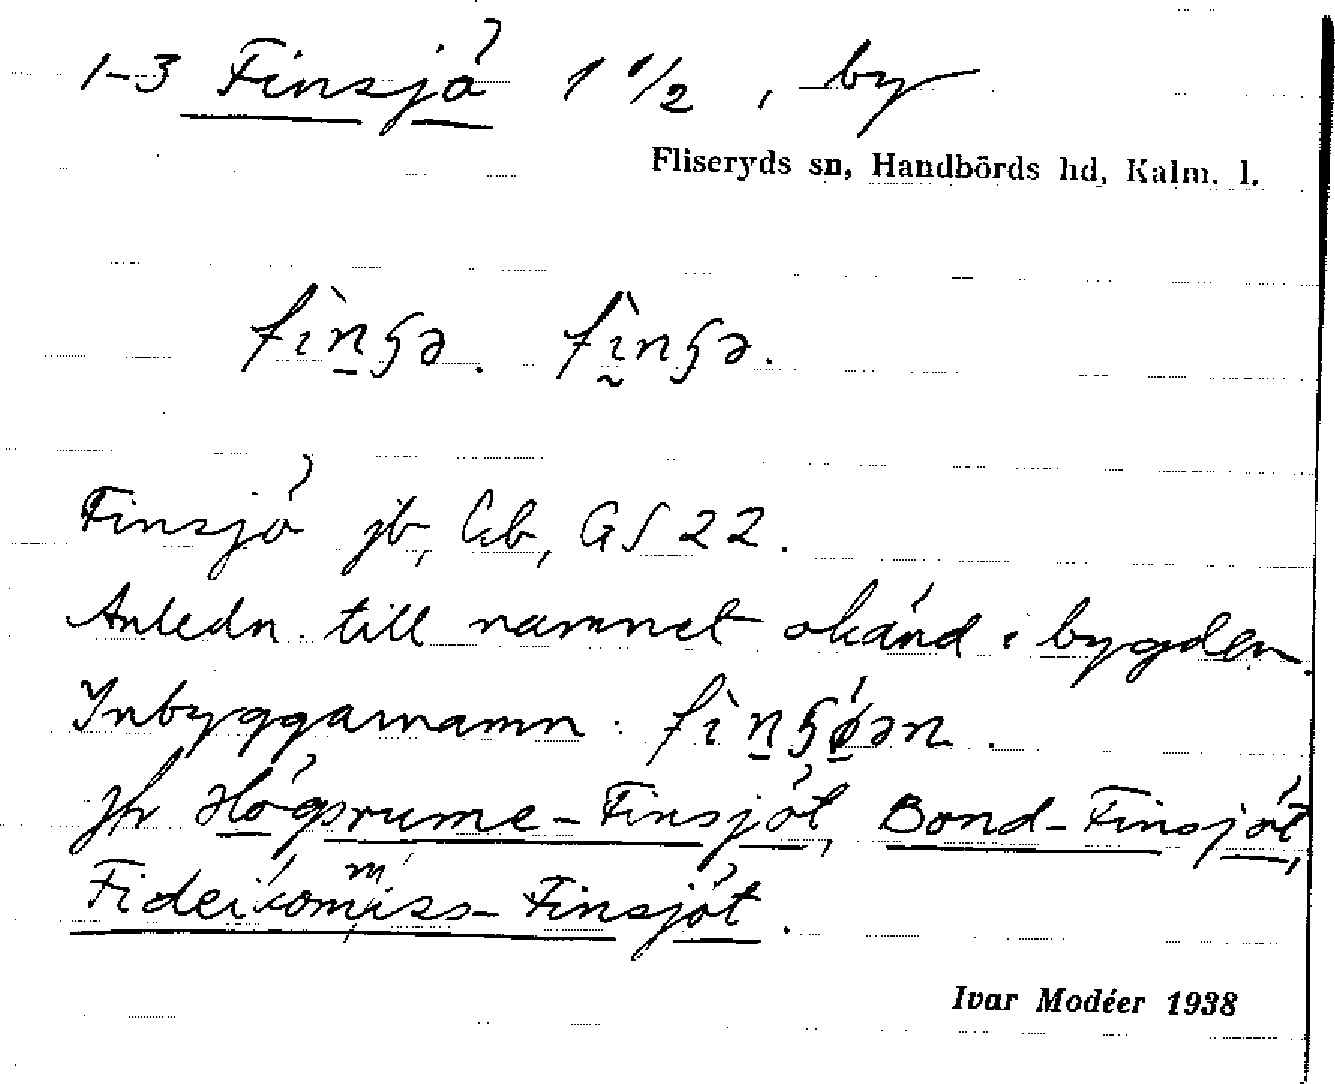 1-3 Finsjö 1 1/2, by
Fliseryds sn, Handbörds hd, Kalm. l.
fìn̲ʂə. fı̰̀nʂə.
Finsjö jb, Gb, GS 22.
Anledn. till namnet okänd i bygden.
Inbyggarnamn: fìn̲ʂǿ̲ən.
Jfr Högsrume-Finsjöt, Bond-Finsjöt,
Fideikommiss-Finsjöt.
Ivar Modéer 1938